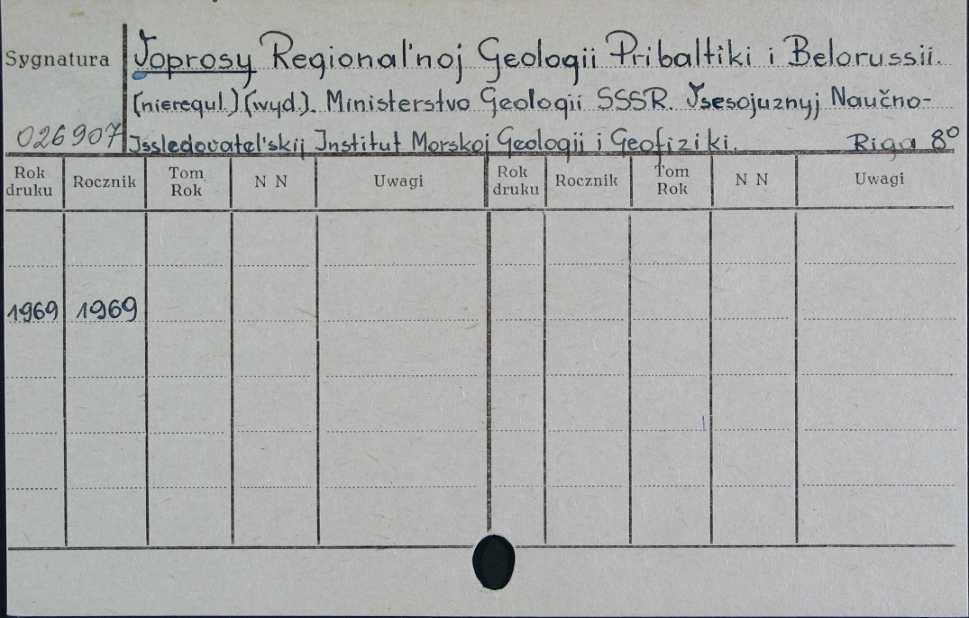 Sygnatura
Voprosy Regional'noj Geologii Pribaltiki i Belorussii.
(nieregul.) (wyd.). Ministerstvo Geologii SSSR. Vsesojuznyj Naučno-
026907 Issledovatel'skij Institut Morskoj Geologii i Geofiziki. Riga 8°
Rok druku Rocznik Tom Rok N N Uwagi Rok druku Rocznik Tom Rok N N Uwagi
1969 1969